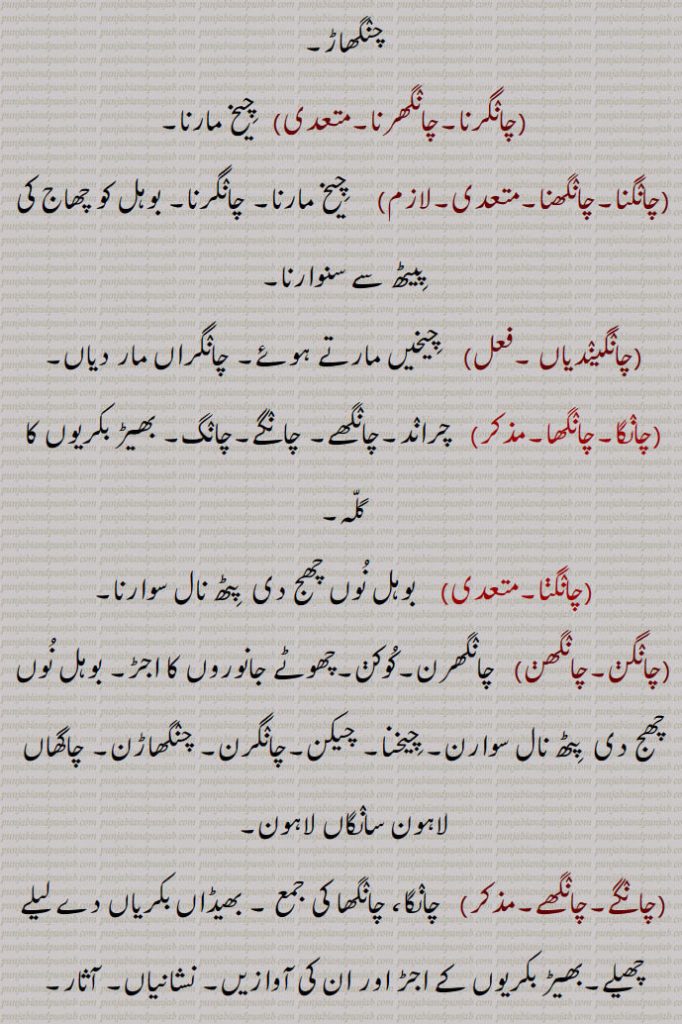 چنگھاڑ۔
(چانگرنا۔چانگھرنا۔متعدی) چِیخ مارنا۔
(چانگنا۔چانگھنا۔متعدی۔لازم) چِیخ مارنا۔ چانگرنا۔ بوہل کو چھاج کی
پِیٹھ سے سنوارنا۔
(چانگیندیاں ۔فعل) چِیخیں مارتے ہوئے۔ چانگراں مار دیاں۔
(چانگا۔چانگھا۔مذکر) چراند۔چانگھے۔ چانگے۔چانگ۔ بھیڑ بکریوں کا
گلّہ۔
(چانگنا۔متعدی) بوہل نُوں چھج دی پِٹھ نال سوارنا۔
(چانگن۔چانگھن) چانگھرن۔کُوکن۔چھوٹے جانوروں کا اجڑ۔ بوہل نُوں
چھج دی پِٹھ نال سوارن۔چیخنا۔ چیکن۔چانگرن۔ چنگھاڑن۔ چاگھاں
لاہون سانگاں لاہون۔
(چانگے۔چانگھے۔مذکر) چانگا، چانگھا کی جمع ۔ بھیڈاں بکریاں دے لیلے
چھیلے۔بھیڑ بکریوں کے اجڑ اور ان کی آوازیں۔ نشانیاں۔ آثار۔